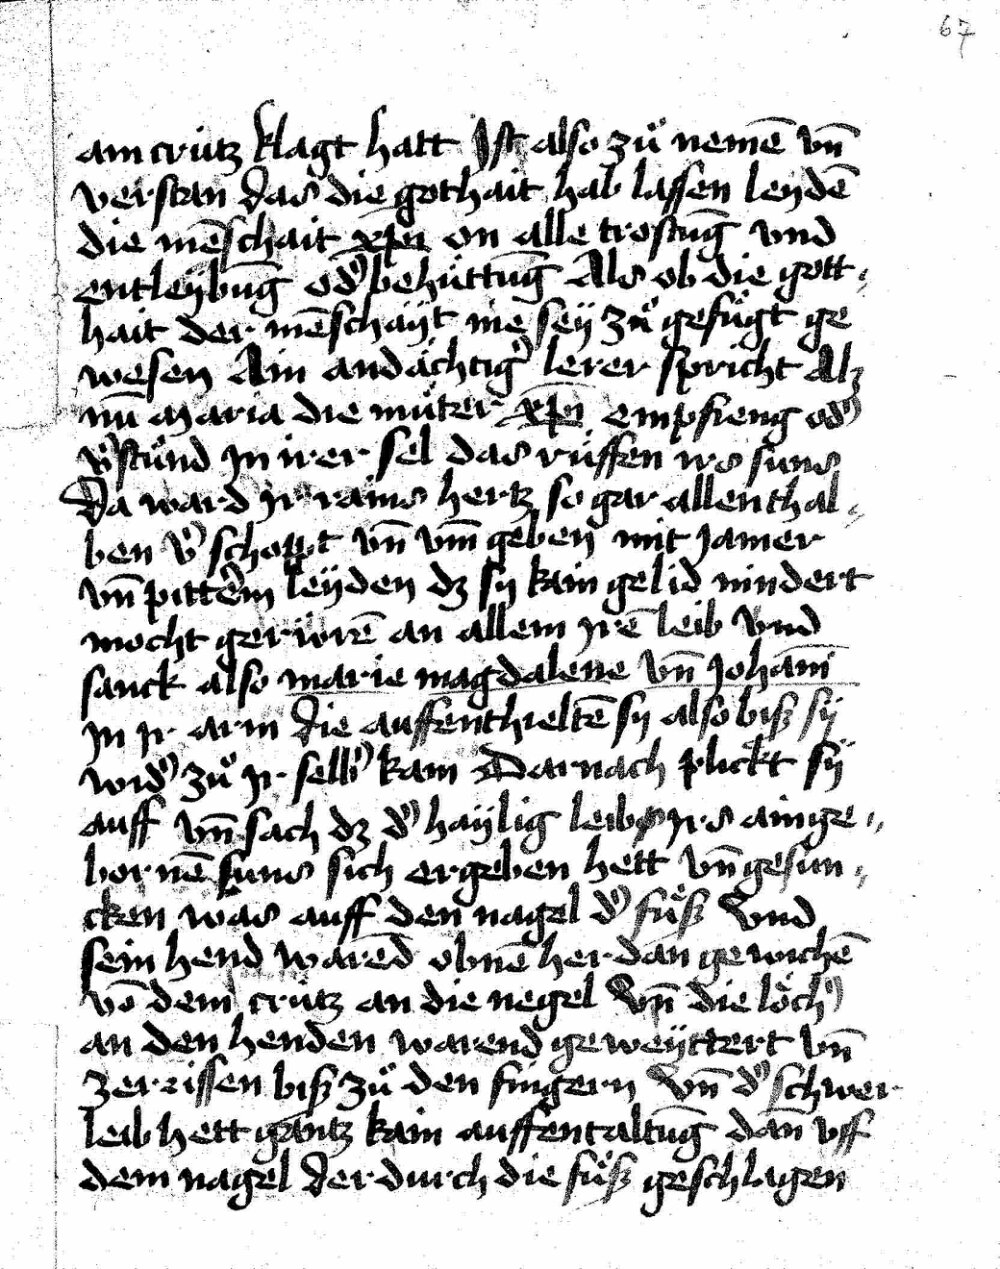 67
am crütz klagt hatt Jst also zuͦ nemē vn̄
verstan das die gothait hab lassen leydē
die mēschait xp̄i on alle trostūg vnd
entleybūg od̾ behüttūg Als ob die gott⸗
hait der mēschayt nie sey zuͦ gefuͤgt ge
wesen Ain andächtig̾ lerer spricht Alz
nū maria die muͤter xp̄i empfieng od̾
v̾stuͤnd jn irer sel das ruͤffen irs suns
Da ward jr rains hertz so gar allenthal⸗
ben v̾schoppt vn̄ vm̄geben mit jamer
vn̄ pitterm leyden dz sy kain gelid nindert
mocht geriwrē an allem jrē leib vnd
sanck also marie magdalene vn̄ johām
jn jr arm die auffenthieltē sy also biß sÿ
wid̾ zuͦ jr selb̾ kam Darnach plickt sÿ
auff vn̄ sach dz d̾ haÿlig leib jrs ainge⸗
bornē suns sich ergeben hett vn̄ gesun⸗
cken was auff den nagel d̾ fuͤß Vnd
sein hend warēd obnē her dan gewichē
vō dem crütz an die negel Vn̄ die löch̾
an den henden warend geweÿttert vn̄
zerrissen biß zuͦ den fingern Vn̄ d̾ schwer
leib hett gantz kain auffentaltūg dan vff
dem nagel der durch die fuͤß geschlagen